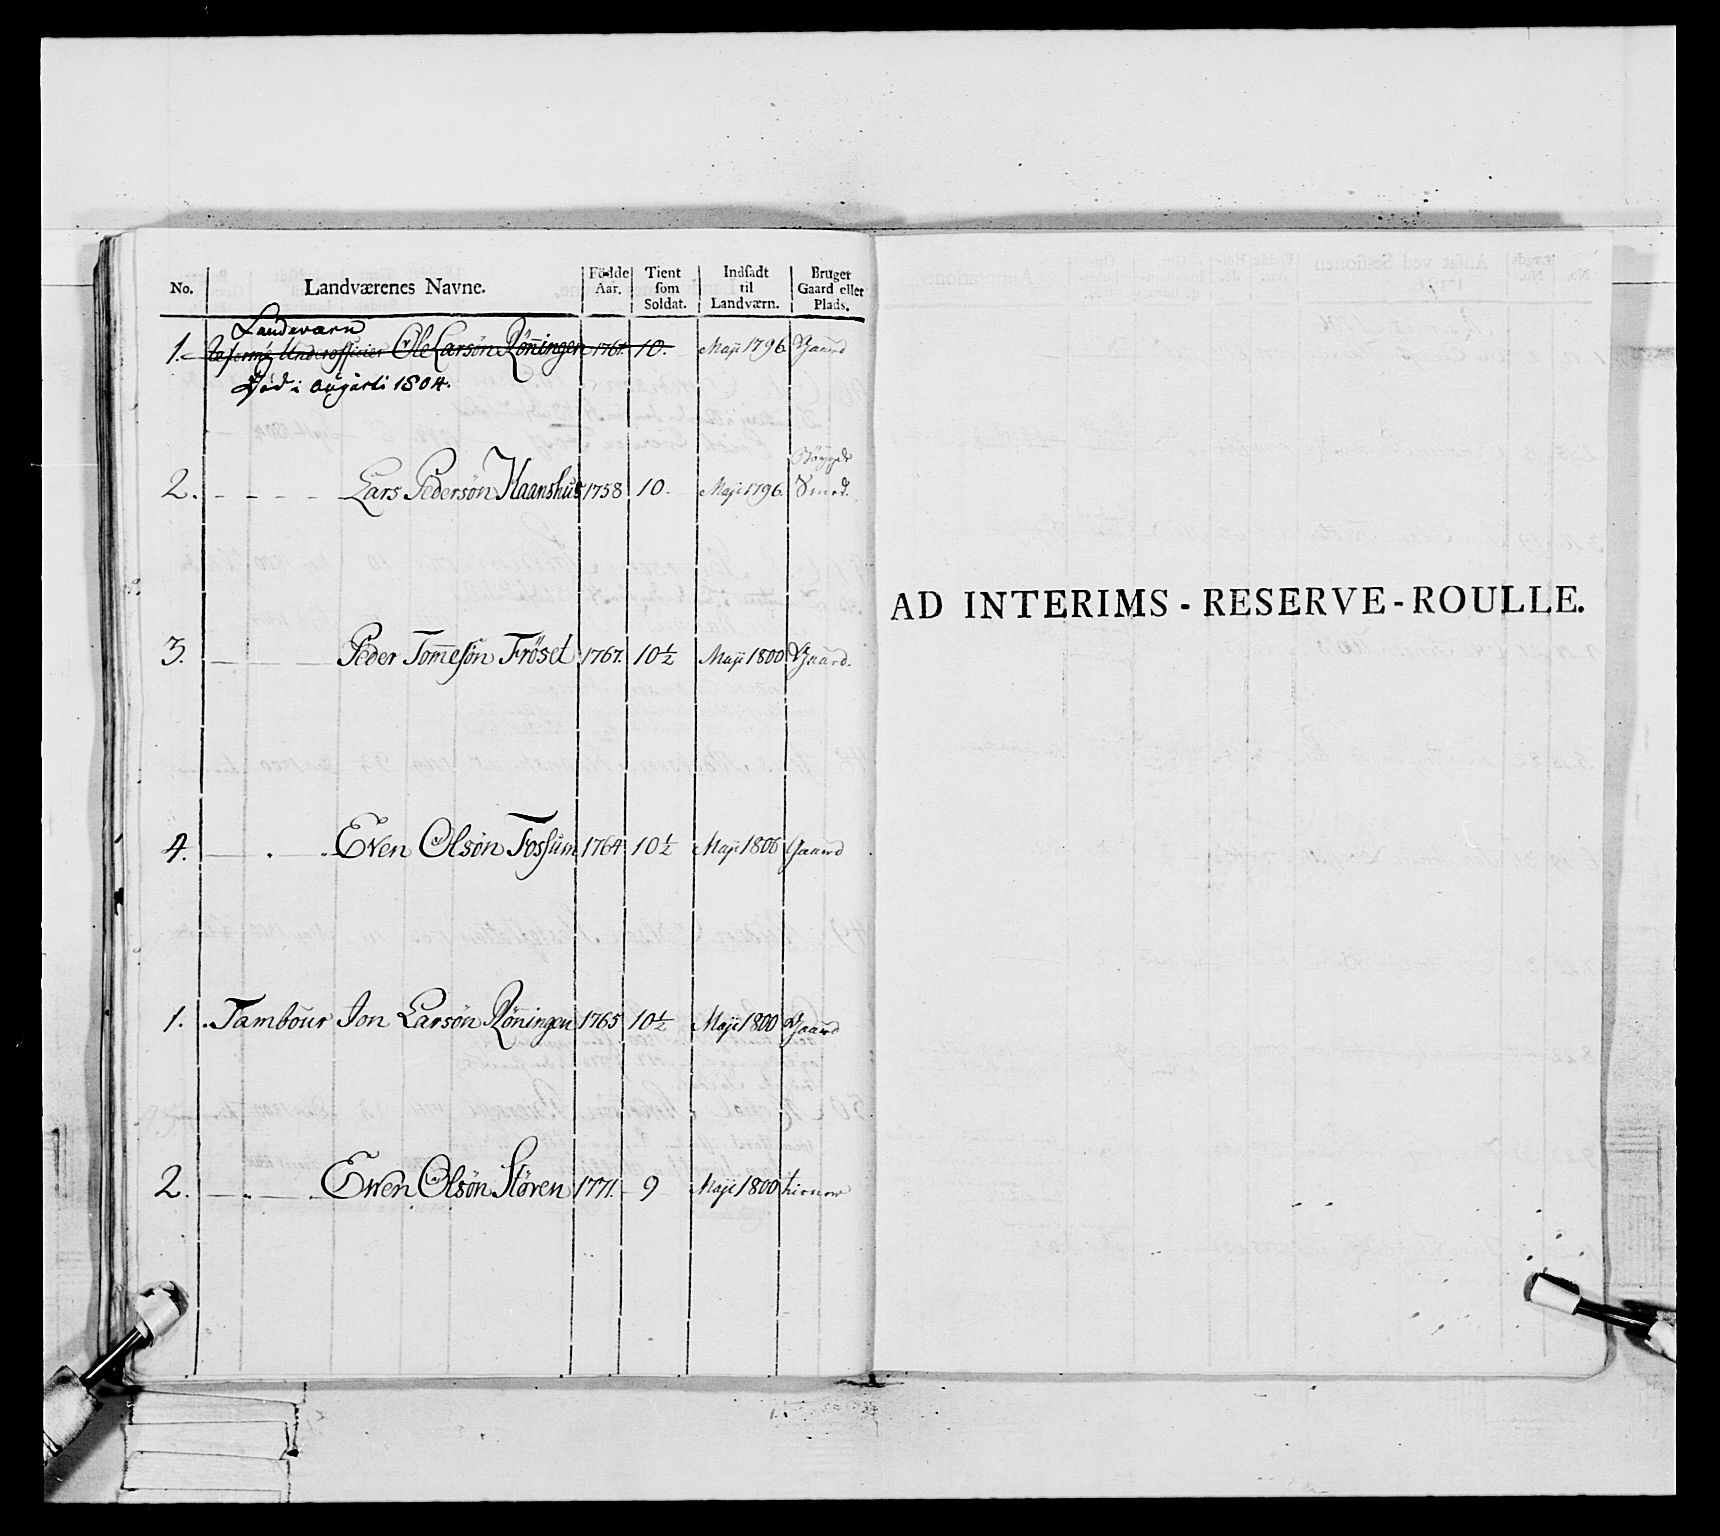 No. Landværenes Navne. Födde Aar. Tient som Soldat. Indsadt til Landværn. Bruger Gaard eller Plads.
Landeværn
1. Underofficier Ole Larsøn Röningen 1761. 10. Maji 1796 Gaard
Död i Augusti 1804.
Böygde
2. Lars Pedersön Haanshus 1758 10. Maji 1796. Smed.
3. Peder Tomesön Fröset 1767. 10½ Maji 1800 Gaard.
4. Even Olsön Fossum 1764 10½ Maji 1800 Gaard
1. Tambour Jon Larsön Röningen 1765 10½ Maji 1800 Gaard
2. Even Olsön Stören 1771. 9 Maji 1800
AD INTERIMS - RESERVE - ROULLE.